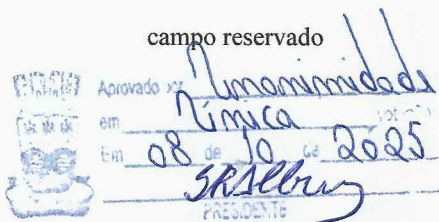 campo reservado
Aprovado por Unanimidade
em Única votação
Em 08 de 10 de 2025
PRESIDENTE